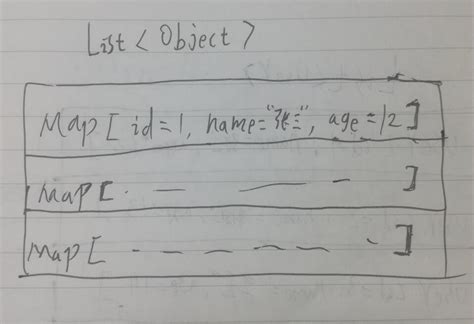 List < Object >
Map [ id = 1, name = "张三", age = 12 ]
Map [ · — — - ]
Map [ - — — — — - ]